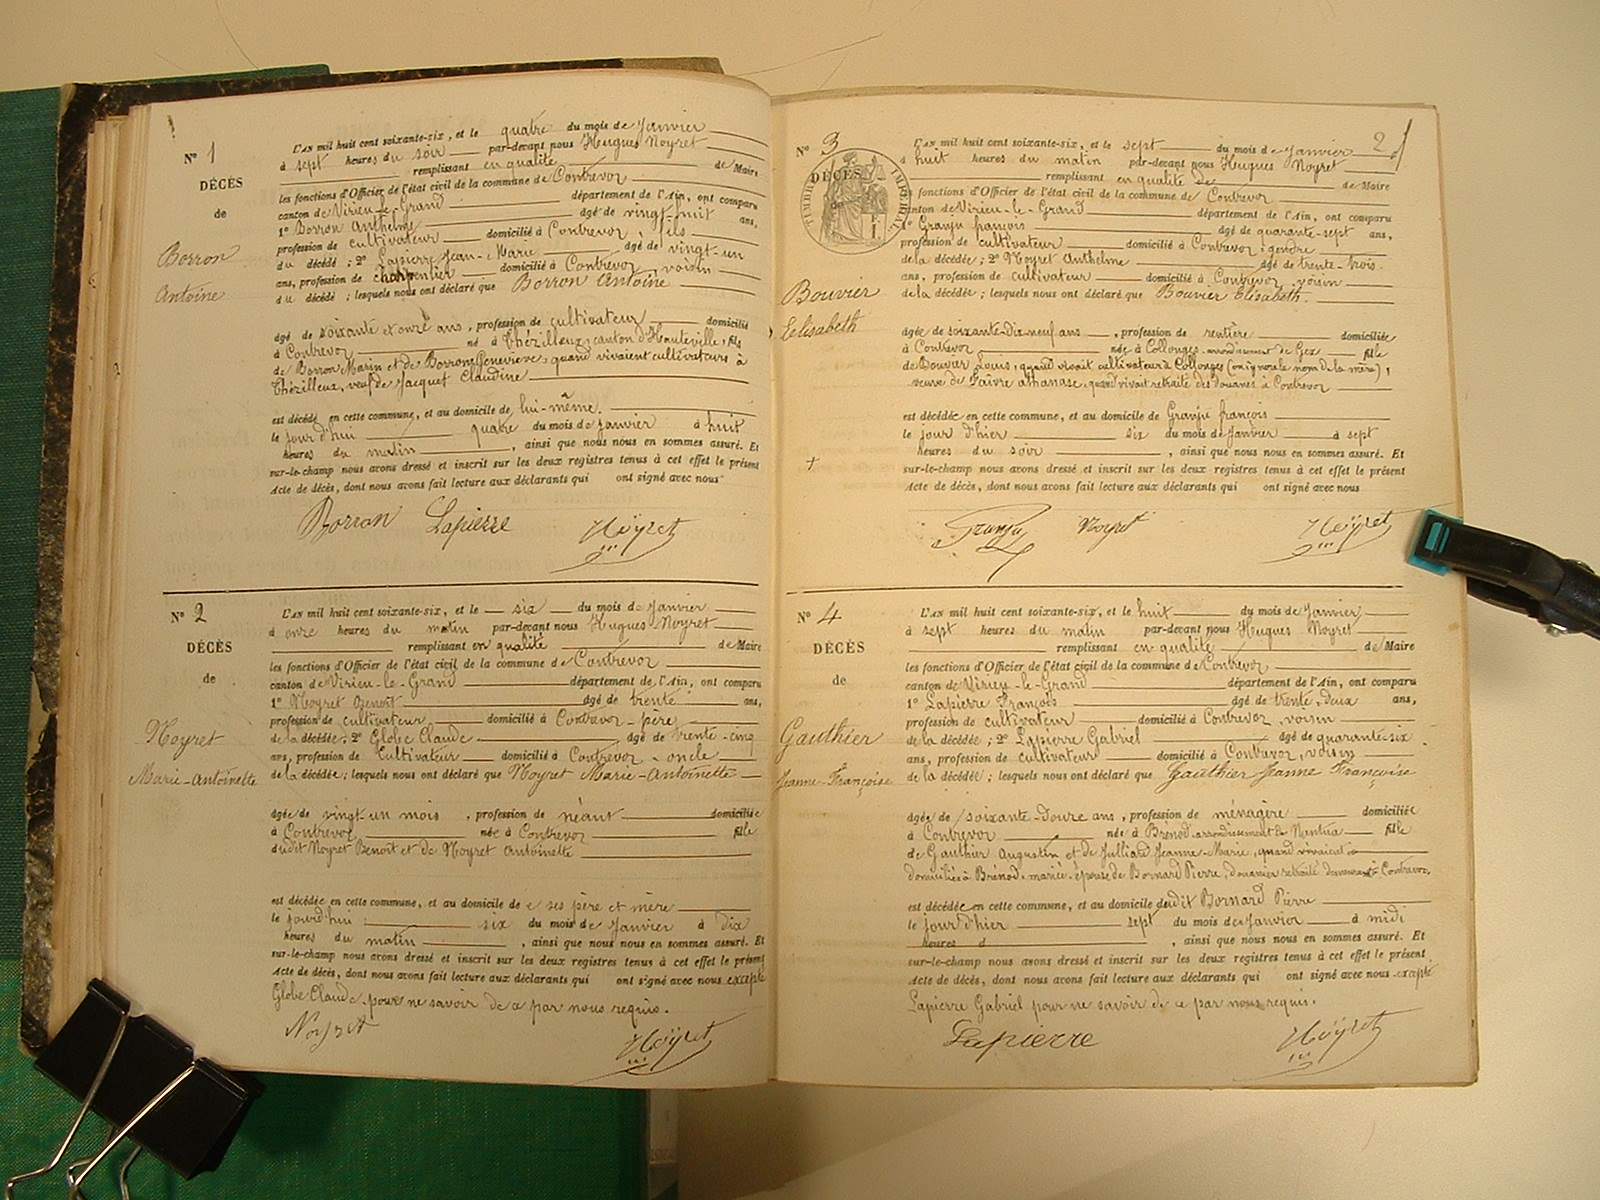 N° 1
DÉCÈS
de
Borron
Antoine
L'AN mil huit cent soixante-six, et le quatre du mois de Janvier
à sept heures du soir par-devant nous Hugues Noyret
remplissant en qualité de Maire
les fonctions d'Officier de l'état civil de la commune de Contrevoz
canton de Virieu-le-Grand département de l'Ain, ont comparu
1° Borron Anthelme âgé de vingt-huit ans,
profession de cultivateur domicilié à Contrevoz, fils
du décédé ; 2° Lapierre Jean-Marie âgé de vingt-un
ans, profession de charpentier domicilié à Contrevoz, voisin
du décédé ; lesquels nous ont déclaré que Borron Antoine
âgé de soixante et onze ans, profession de cultivateur domicilié
à Contrevoz né à Thézilleux, canton d'Hauteville, fils
de Borron Marin et de Borron Genevieve, quand vivaient cultivateurs à
Thézilleux, veuf de Jacquet Claudine
est décédé en cette commune, et au domicile de lui-même.
le jour d'hui quatre du mois de Janvier à huit
heures du matin, ainsi que nous nous en sommes assuré. Et
sur-le-champ nous avons dressé et inscrit sur les deux registres tenus à cet effet le présent
Acte de décès, dont nous avons fait lecture aux déclarants qui ont signé avec nous
Borron Lapierre Noÿret
N° 2
DÉCÈS
de
Noyret
Marie-Antoinette
L'AN mil huit cent soixante-six, et le six du mois de Janvier
à onze heures du matin par-devant nous Hugues Noyret
remplissant en qualité de Maire
les fonctions d'Officier de l'état civil de la commune de Contrevoz
canton de Virieu-le-Grand département de l'Ain, ont comparu
1° Noyret Benoît âgé de trente ans,
profession de cultivateur domicilié à Contrevoz - père
de la décédée ; 2° Globe Claude âgé de trente-cinq
ans, profession de Cultivateur domicilié à Contrevoz - oncle
de la décédée ; lesquels nous ont déclaré que Noyret Marie-Antoinette
âgée de vingt un mois, profession de néant domiciliée
à Contrevoz née à Contrevoz fille
dudit Noyret Benoît et de Noyret Antoinette
est décédée en cette commune, et au domicile de ses père et mère
le jourd'hui six du mois de Janvier à dix
heures du matin, ainsi que nous nous en sommes assuré. Et
sur-le-champ nous avons dressé et inscrit sur les deux registres tenus à cet effet le présent
Acte de décès, dont nous avons fait lecture aux déclarants qui ont signé avec nous excepté
Globe Claude pour ne savoir de ce par nous requis.
Noyret Noÿret
2
N° 3
DÉCÈS
TIMBRE IMPÉRIAL
Bouvier
Eelisabeth
L'AN mil huit cent soixante-six, et le sept du mois de Janvier
à huit heures du matin par-devant nous Hugues Noyret
remplissant en qualité de de Maire
les fonctions d'Officier de l'état civil de la commune de Contrevoz
canton de Virieu-le-Grand département de l'Ain, ont comparu
1° Granju françois âgé de quarante-sept ans,
profession de cultivateur domicilié à Contrevoz, gendre
de la décédée ; 2° Noyret Anthelme âgé de trente-trois
ans, profession de cultivateur domicilié à Contrevoz, voisin
de la décédée ; lesquels nous ont déclaré que Bouvier Elisabeth.
âgée de soixante-dix neuf ans, profession de rentière domiciliée
à Contrevoz née à Collonges arrondissement de Gex fille
de Bouvier Louis, quand vivait cultivateur à Collonges (on ignore le nom de la mère),
veuve de Faivre athanase, quand vivait retraité des Douanes à Contrevoz
est décédée en cette commune, et au domicile de Granju françois
le jour d'hier six du mois de Janvier à sept
heures du soir, ainsi que nous nous en sommes assuré. Et
sur-le-champ nous avons dressé et inscrit sur les deux registres tenus à cet effet le présent
Acte de décès, dont nous avons fait lecture aux déclarants qui ont signé avec nous
Granju Noyret Noÿret
N° 4
DÉCÈS
de
Gauthier
Jeanne-Françoise
L'AN mil huit cent soixante-six, et le huit du mois de Janvier
à sept heures du matin par-devant nous Hugues Noyret
remplissant en qualité de Maire
les fonctions d'Officier de l'état civil de la commune de Contrevoz
canton de Virieu-le-Grand département de l'Ain, ont comparu
1° Lapierre François âgé de trente-deux ans,
profession de cultivateur domicilié à Contrevoz, voisin
de la décédée ; 2° Lapierre Gabriel âgé de quarante-six
ans, profession de cultivateur domicilié à Contrevoz, voisin
de la décédée ; lesquels nous ont déclaré que Gauthier Jeanne Françoise
âgée de soixante-douze ans, profession de ménagère domiciliée
à Contrevoz née à Brénod arrondissement de Nantua fille
de Gauthier Augustin et de Julliard Jeanne-Marie, quand vivaient
domiciliés à Brénod - mariée - épouse de Bornard Pierre, Douanier retraité demeurant à Contrevoz,
est décédée en cette commune, et au domicile dudit Bornard Pierre
le jour d'hier sept du mois de Janvier à midi
heures d, ainsi que nous nous en sommes assuré. Et
sur-le-champ nous avons dressé et inscrit sur les deux registres tenus à cet effet le présent
Acte de décès, dont nous avons fait lecture aux déclarants qui ont signé avec nous excepté
Lapierre Gabriel pour ne savoir de ce par nous requis.
Lapierre Noÿret